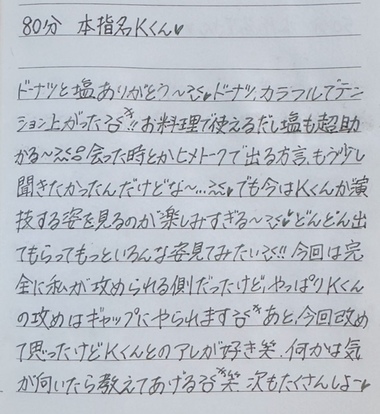 80分 本指名Kくん♥
ドーナツと塩ありがとう〜ミミ♥ドーナツ、カラフルでテン
ション上がったる!!お料理で使えるだし塩も超助
かる〜ミミ会った時とかヒメトークで出る方言、もう少し
聞きたかったんだけどな〜...ミミ♥でも今はKくんが演
技する姿を見るのが楽しみすぎる〜ミミ♥どんどん出
てもらってもっといろんな姿見てみたいミミ!!今回は完
全に私が攻められる側だったけど、やっぱりKくん
の攻めはギャップにやられますあと、今回改め
て思ったけどKくんとのアレが好き笑 何かは気
が向いたら教えてあげる笑 次もたくさんしよー♥